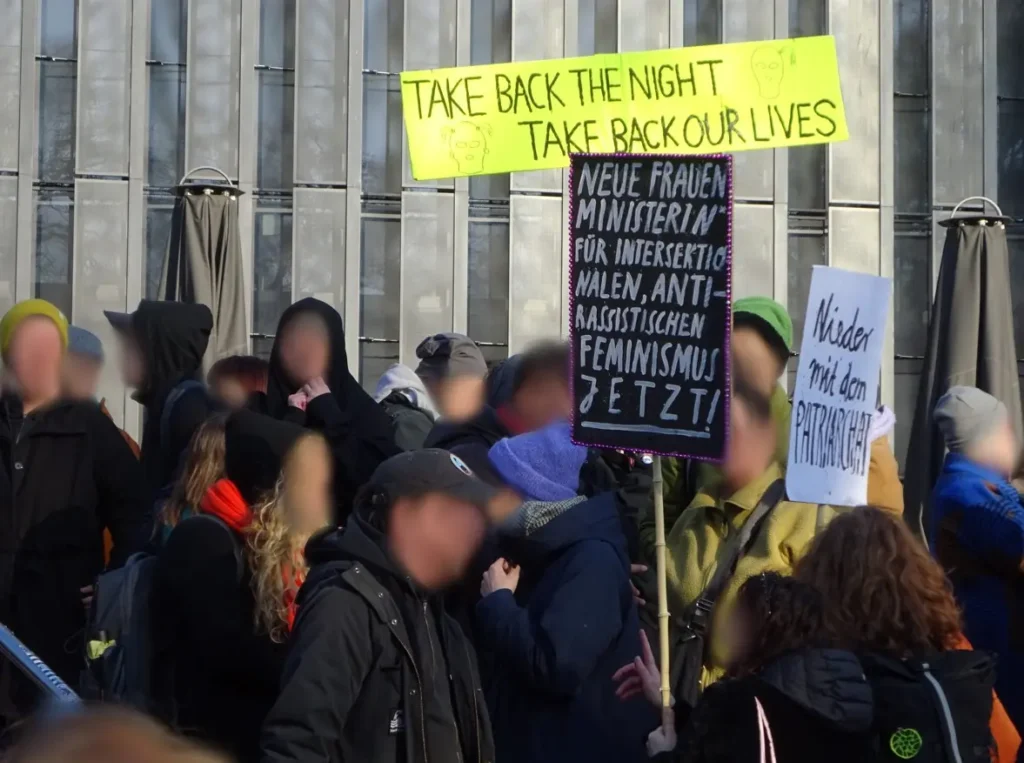 TAKE BACK THE NIGHT
TAKE BACK OUR LIVES
NEUE FRAUEN
MINISTERIN*
FÜR INTERSEKTIO
NALEN, ANTI-
RASSISTISCHEN
FEMINISMUS
JETZT!
Nieder
mit dem
PATRIARCHAT